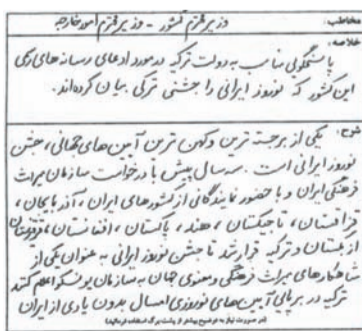 مخاطب: وزیر محترم کشور - وزیر محترم امور خارجه
خلاصه:
پاسخگوئی مناسب به دولت ترکیه در مورد ادعای رسانه‌های ترکی
این کشور که نوروز ایرانی را جشنی ترکی بیان کرده‌اند.
شرح: یکی از برجسته ترین و کهن ترین آیین های جهانی، جشن
نوروز ایرانی است. سه سال پیش با درخواست سازمان میراث
فرهنگی ایران و با حضور نمایندگانی از کشورهای ایران، آذربایجان،
قزاقستان، تاجیکستان، هند، پاکستان، افغانستان، قرقیزستان
ازبکستان و ترکیه قرار شد تا جشن نوروز ایرانی به عنوان یکی از
شاهکارهای میراث فرهنگی و معنوی جهان به سازمان یونسکو اعلام کنند
ترکیه در برپایی آیین های نوروزی امسال بدون یادی از ایران
(در صورت نیاز به توضیح بیشتر از پشت برگ استفاده فرمائید)